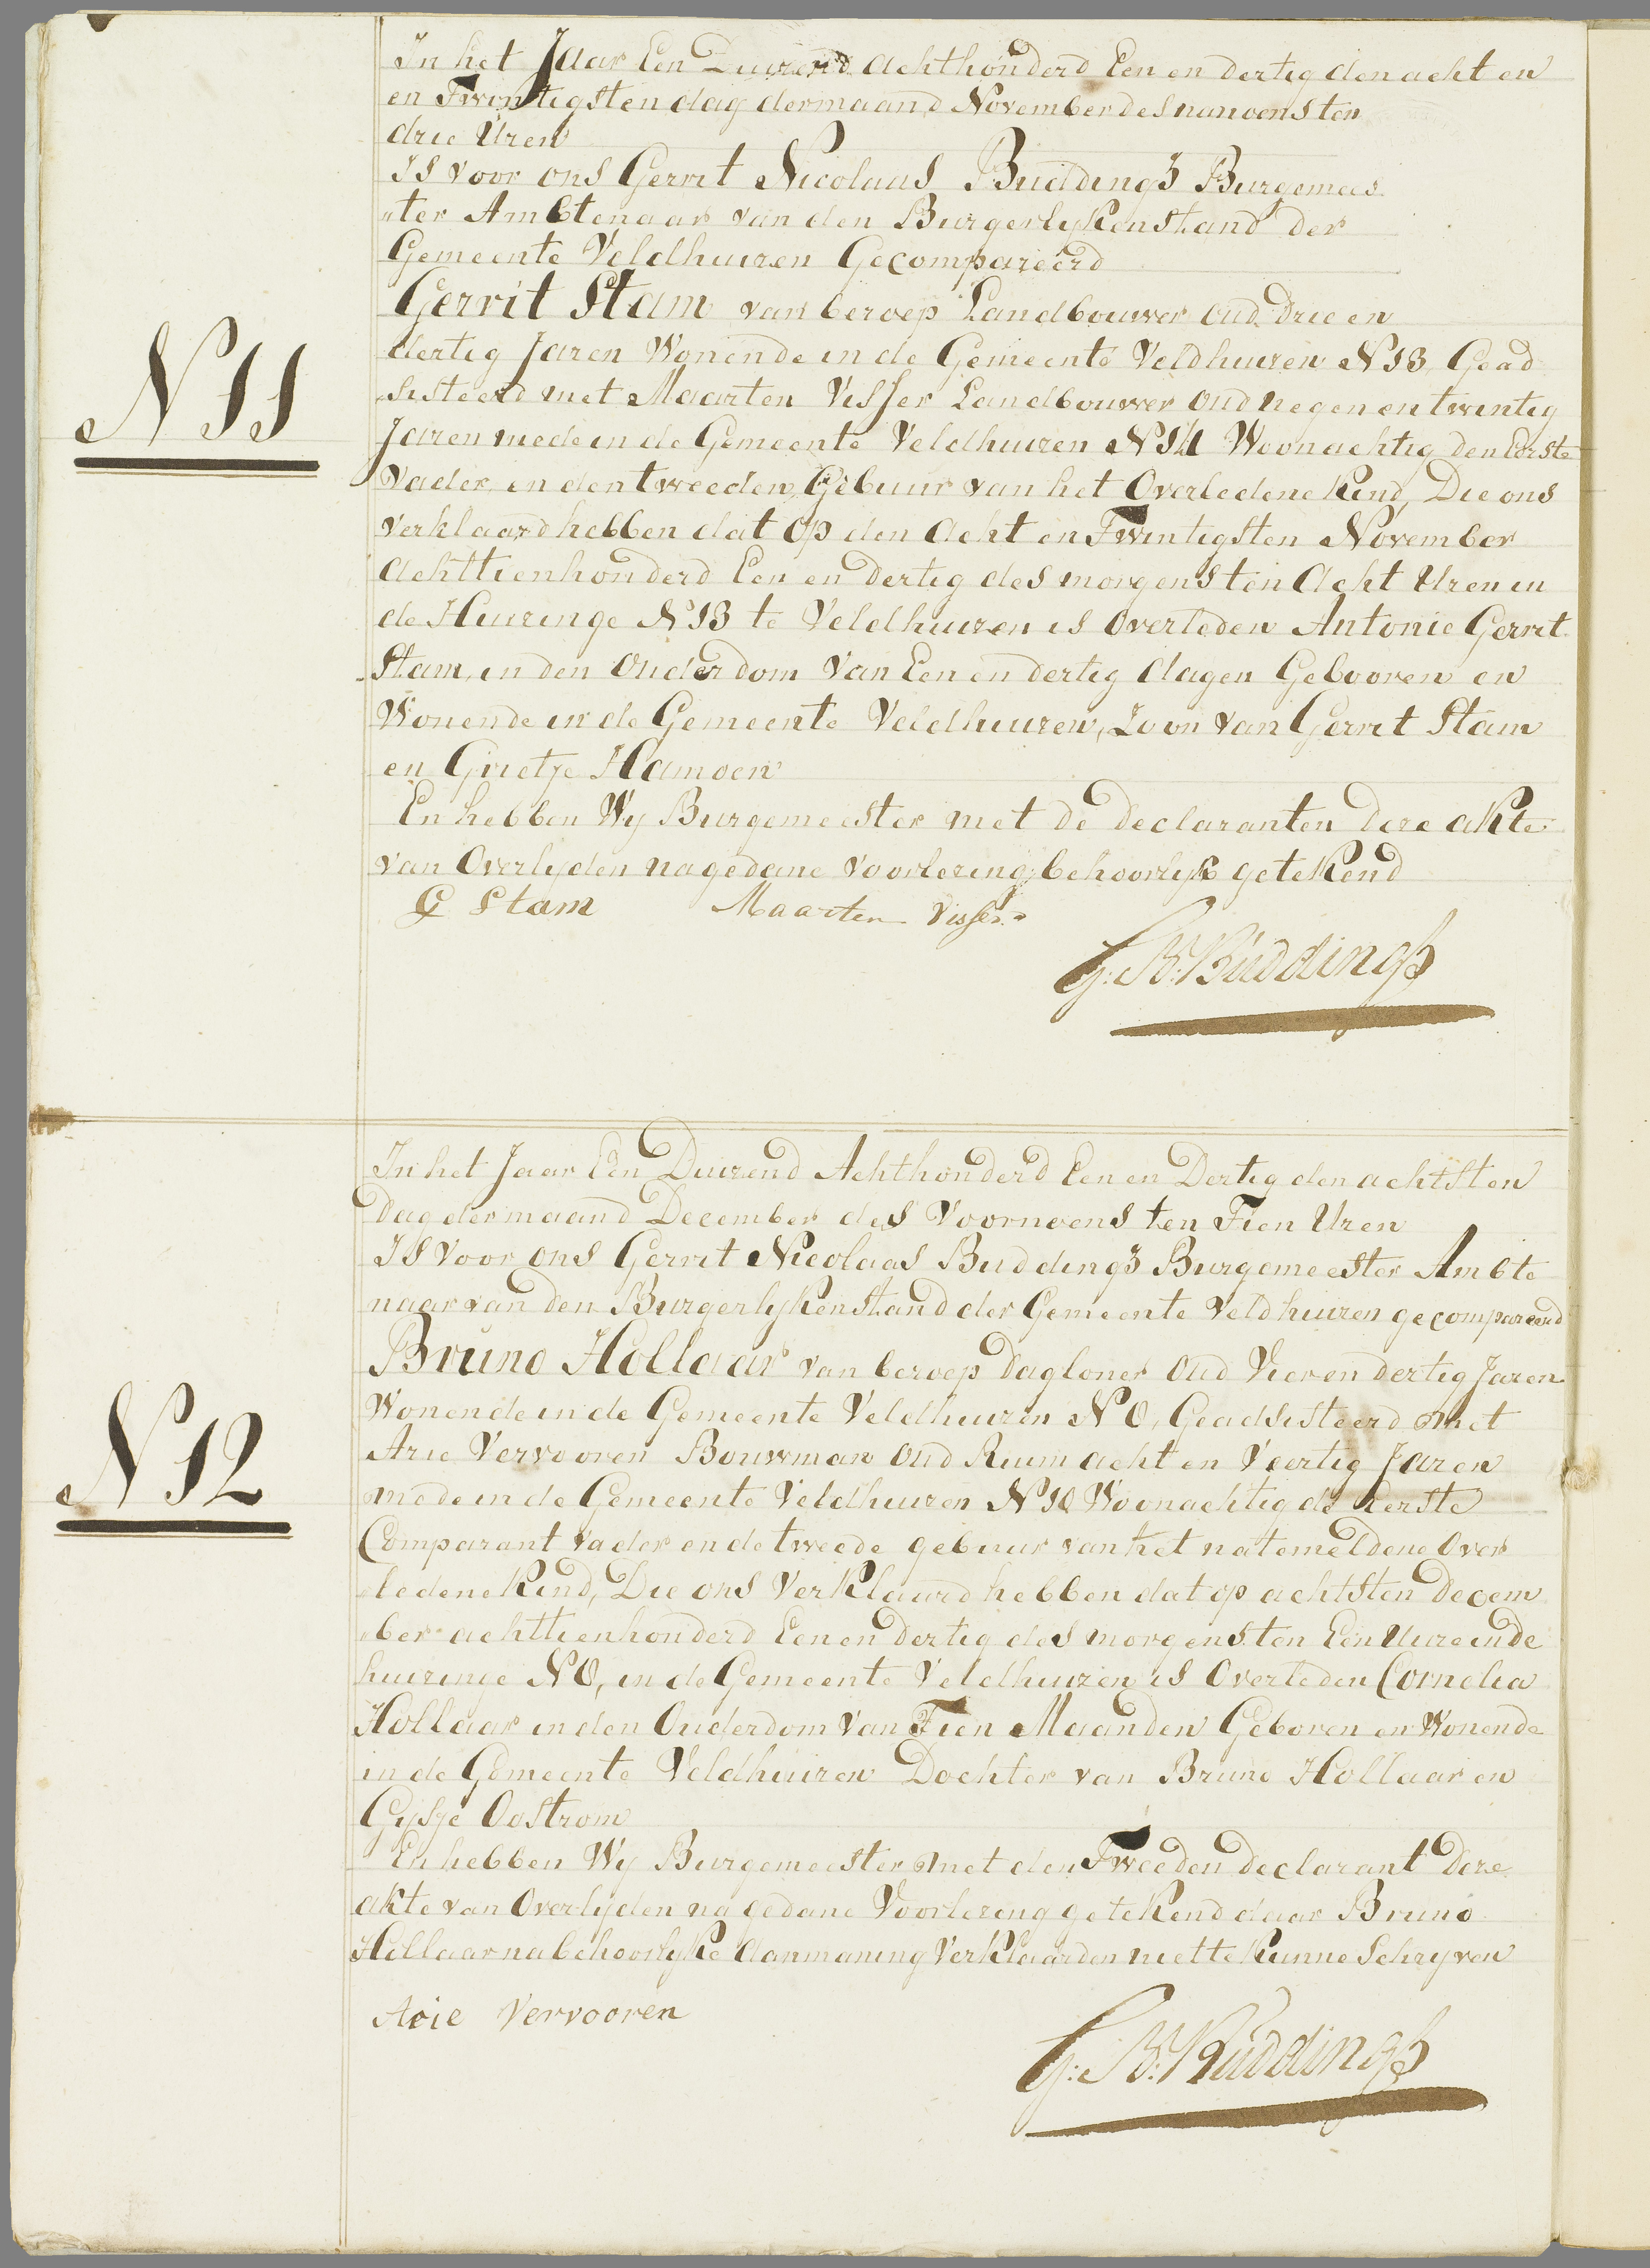 In het Jaar Een Duizend Achthonderd Een en dertig den acht en
en Twintigsten dag der maand November des namoens ten
drie Uren
Is voor ons Gerrit Nicolaas Buddingh Burgemees
„ter Ambtenaar van den Burgerlyken stand der
Gemeente Veldhuizen Gecompareerd
Gerrit Stam van beroep Landbouwer oud drie en
dertig Jaren Wonende in de Gemeente Veldhuizen N 13 Gead
„sisteerd met Maarten Visser Landbouwer oud negen en twintig
Jaren mede in de Gemeente Veldhuizen N 14 Woonachtig den Eerste
N 11
Vader en den tweeden Gebuur van het Overledene Kind, Die ons
verklaard hebben dat op den Acht en Twintigsten November
Achttienhonderd Een en dertig des morgens ten Acht Uren in
de Huizinge N 13 te Veldhuizen is Overleden Antonie Gerrit
Stam, in den Ouderdom Van Een en dertig dagen Gebooren en
Wonende in de Gemeente Veldhuizen, Zoon van Gerrit Stam
en Grietje Hamoen
En hebben Wy Burgemeester met de declaranten deze akte
van Overlyden na gedane voorlezing behoorlyk getekend
G Stam Maarten Visser
G: N: Buddingh
In het Jaar Een Duizend Achthonderd Een en Dertig den achtsten
Dag der maand December des Voornoens ten Tien Uren
Is voor ons Gerrit Nicolaas Buddingh Burgemeester Ambte
naar van den Burgerlyken stand der Gemeente Veldhuizen gecompareerd
Bruno Hollaar van beroep dagloner Oud Vier en dertig Jaren
Wonende in de Gemeente Veldhuizen N 6, Geadsisteerd met
Arie Vervooren Bouwman Oud Ruim acht en Veertig Jaren
N 12
mede in de Gemeente Veldhuizen N 10 Woonachtig de Eerste
Comparant vader en de tweede gebuur van het natemeldene Over
„ledene Kind, Die ons Verklaard hebben dat op achtsten Decem
„ber achttienhonderd Een en dertig des morgens ten Een Ure in de
huizinge N 6, in de Gemeente Veldhuizen is Overleden Cornelia
Hollaar in den Ouderdom van Tien Maanden Geboren en Wonende
in de Gemeente Veldhuizen Dochter van Bruno Hollaar en
Gijsje Oostrom
En hebben Wy Burgemeester met den Tweeden declarant deze
akte van Overlyden na gedane Voorlezing getekend daar Bruno
Hollaar na behoorlyke Aanmaning Verklaarden niet te Kunne Schryven
Arie Vervooren
G: N: Buddingh